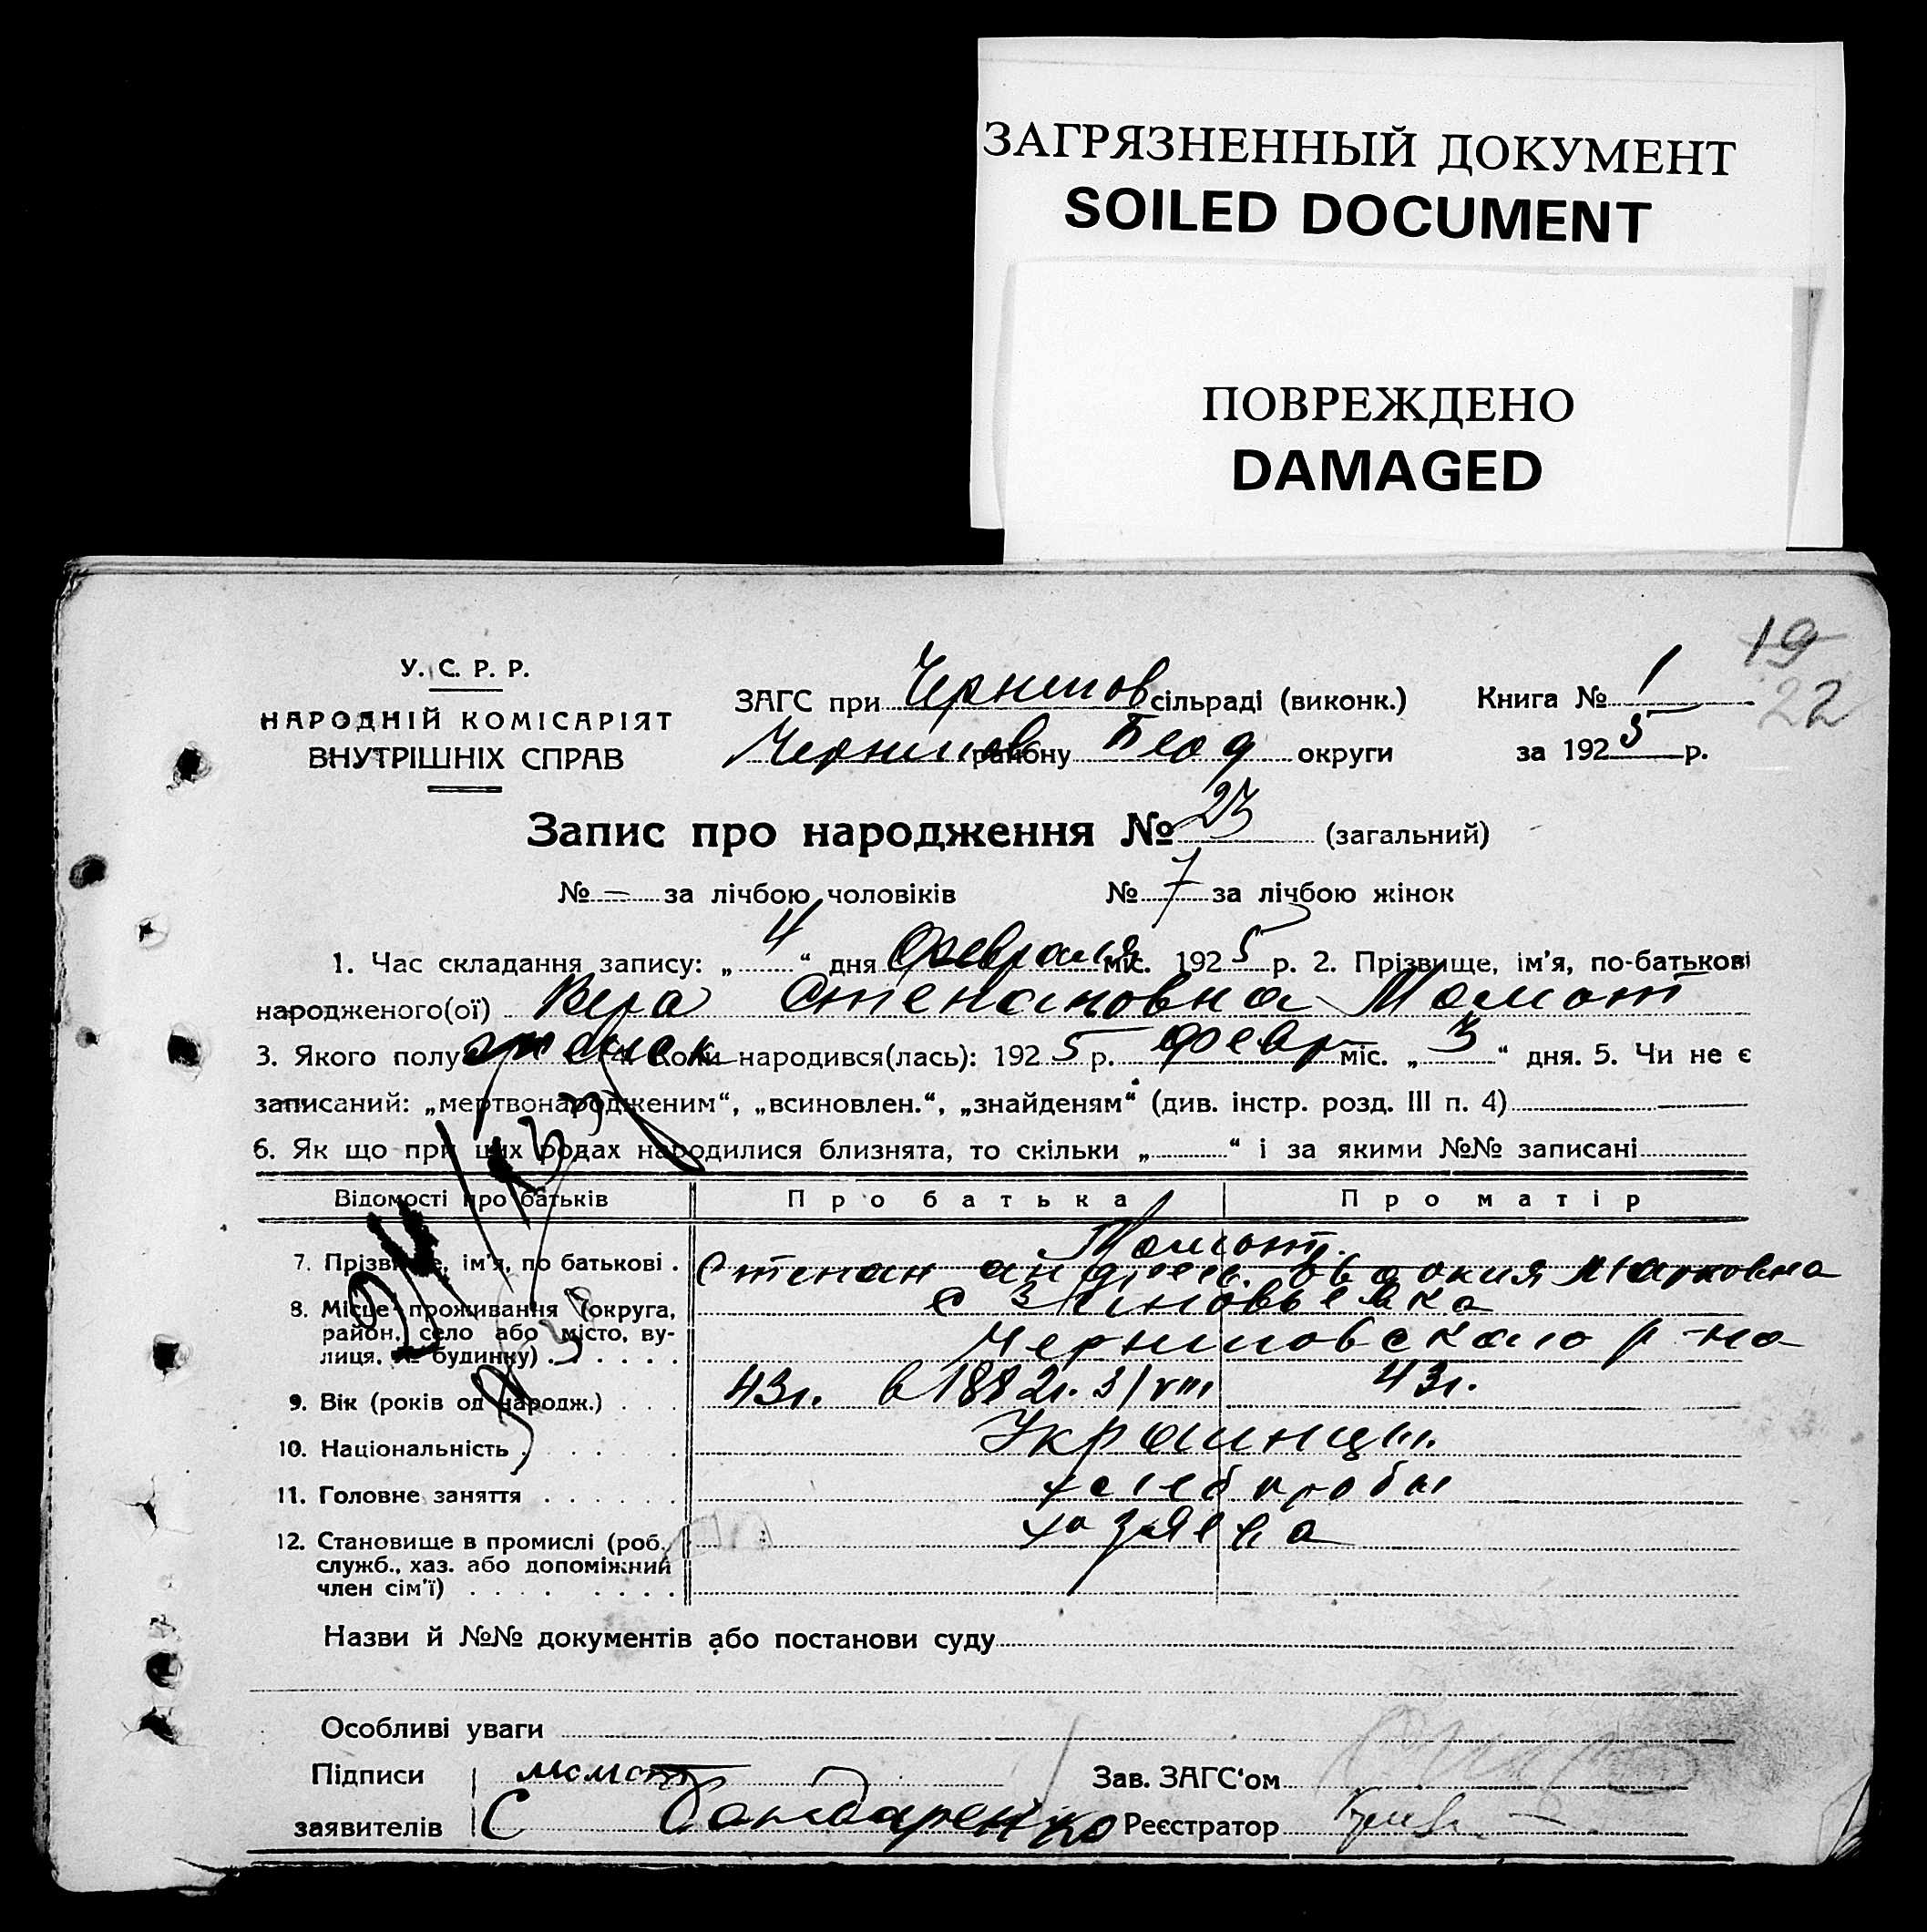 ЗАГРЯЗНЕННЫЙ ДОКУМЕНТ
SOILED DOCUMENT
ПОВРЕЖДЕНО
DAMAGED
19
22
У. С. Р. Р.
НАРОДНІЙ КОМІСАРІЯТ
ВНУТРІШНІХ СПРАВ
ЗАГС при Чернигов сільраді (виконк.) Книга № 1
Чернигов району округи за 1925 р.
Запис про народження № 23 (загальний)
№ – за лічбою чоловіків № 7 за лічбою жінок
1. Час складання запису: „4“ дня Февраля міс. 1925 р. 2. Прізвище, ім'я, по-батькові
народженого(ої) Вера Степановна Момот
3. Якого полу женск 4. Коли народився(лась): 1925 р. Февр міс. „3“ дня. 5. Чи не є
записаний: „мертвонародженим“, „всиновлен.“, „знайденям“ (див. інстр. розд. III п. 4)
6. Як що при цих родах народилися близнята, то скільки „ “ і за якими №№ записані
Відомості про батьків Про батька Про матір
Момот.
7. Прізвище, ім'я, по батькові . Степан Андреев. Евдокия Марковна
8. Місце проживання (округа, с Зиновьевка
район, село або місто, ву- Черниговского р-на
лиця, № будинку)
9. Вік (років од народж.) . . . 43г. в 1882г. 3/VIII 43г.
10. Національність Украинцы.
11. Головне заняття хлеборобы
12. Становище в промислі (роб. хозяева
служб., хаз. або допоміжний
член сім'ї)
Назви й №№ документів або постанови суду
Особливі уваги
Підписи момот Зав. ЗАГС'ом
заявителів С Бондаренко Реєстратор